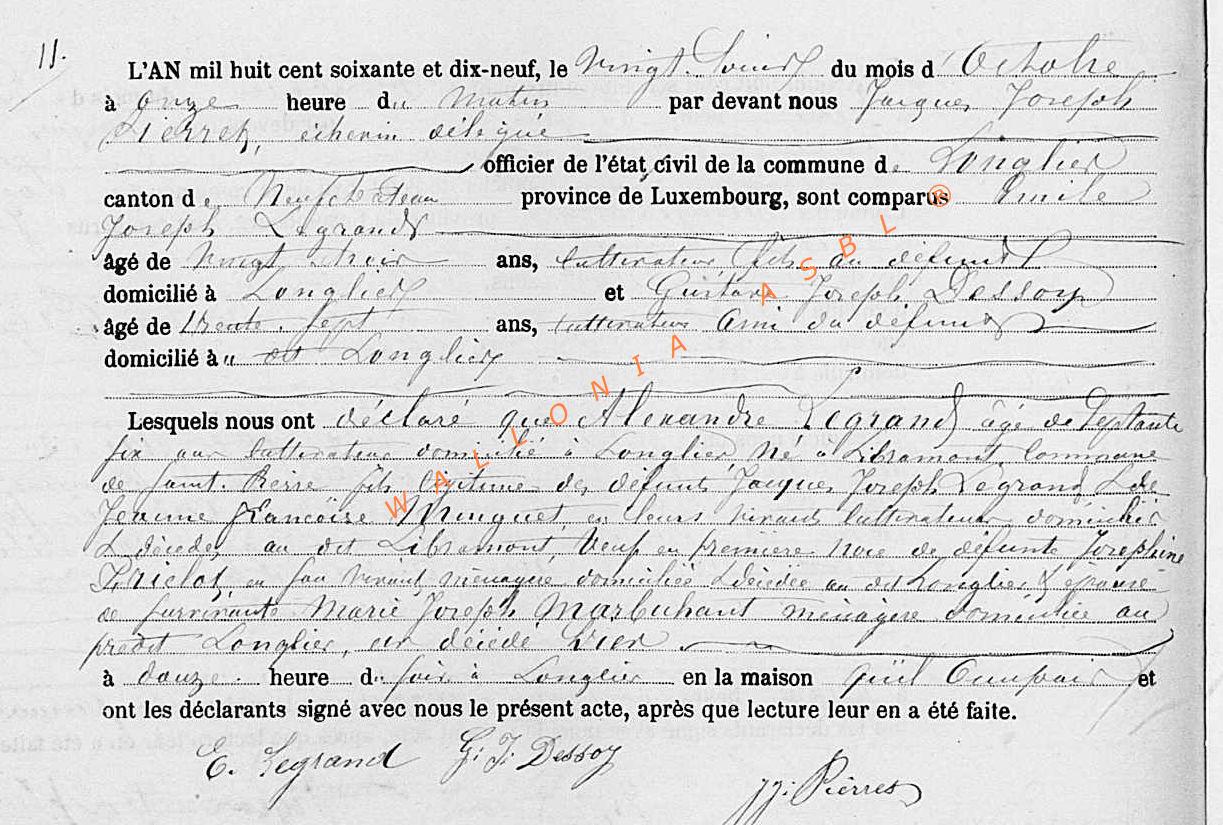 11.
L'AN mil huit cent soixante et dix-neuf, le vingt du mois d'Octobre
à onze heure du matin par devant nous Jacques Joseph
Pierret, échevin délégué
officier de l'état civil de la commune de Longlier
canton de Neufchateau province de Luxembourg, sont comparus Emile
Joseph Legrand
âgé de vingt trois ans, cultivateur, fils au défunt
domicilié à Longlier et Gustave Joseph Dessoy
âgé de trente sept ans, cultivateur ami du défunt
domicilié à u dit Longlier
Lesquels nous ont déclaré que Alexandre Legrand âgé de septante
six ans cultivateur domicilié à Longlier, né à Libramont, commune
de Saint Pierre fils légitime des défunts Jacques Joseph Legrand & de
Jeanne Françoise Minguet, en leurs vivants cultivateurs domiciliés
& décédés au dit Libramont, veuf en première noce de défunte Joséphine
en son vivant ménagère domiciliée & décédée au dit Longlier & époux
de survivante Marie Joseph Marbuhant ménagère domiciliée au
prédit Longlier, est décédé hier
à douze heure du soir à Longlier en la maison qu'il occupait et
ont les déclarants signé avec nous le présent acte, après que lecture leur en a été faite.
E. Legrand G. J. Dessoy
J.J. Pierret
WALLONIA ASBL ®